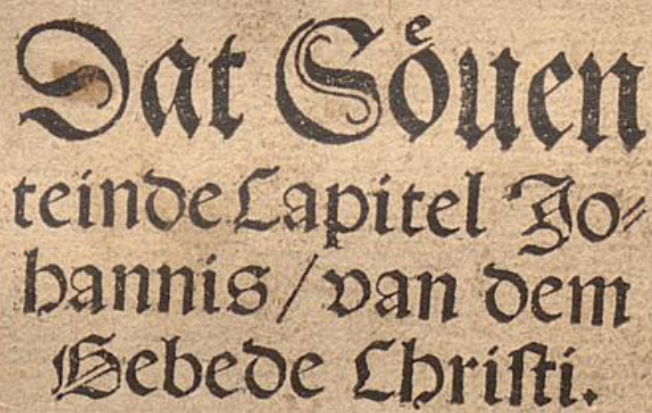 Dat Soͤuen
teinde Capitel Jo⸗
hannis / van dem
Gebede Christi.